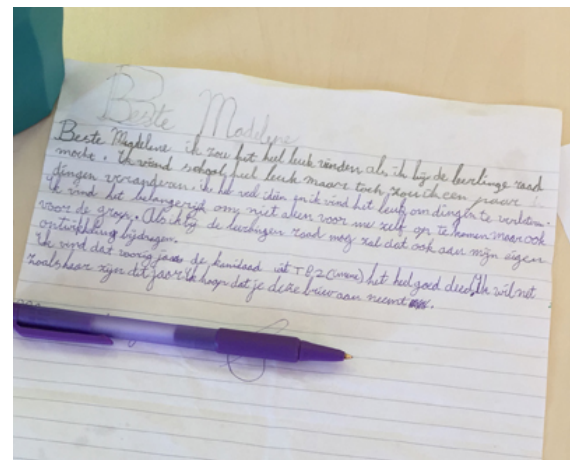 Beste Madelyne
Beste Magdelene ik zou het heel leuk vinden als ik bij de leerlinge raad
mocht. Ik viend school heel leuk maare toch zou ik een paar
dingen veranderen, ik heb veel iдиën en ik vind het leuk om dingen te verbeteren.
ik vind het belangerijd om niet aleen voor me zelf op te komen maar ook
voor de groep. Als ik bij de leerlingen raad mag zal dat ook aan mijn eigen
ontwikkeling bijdragen.
Ik vind dat voorig jaar de kanidaad uit T.B.2 het heel goed deed, Ik wil net
zoals haar zijn dit jaar ik hoop dat je deze briev aan neemt.